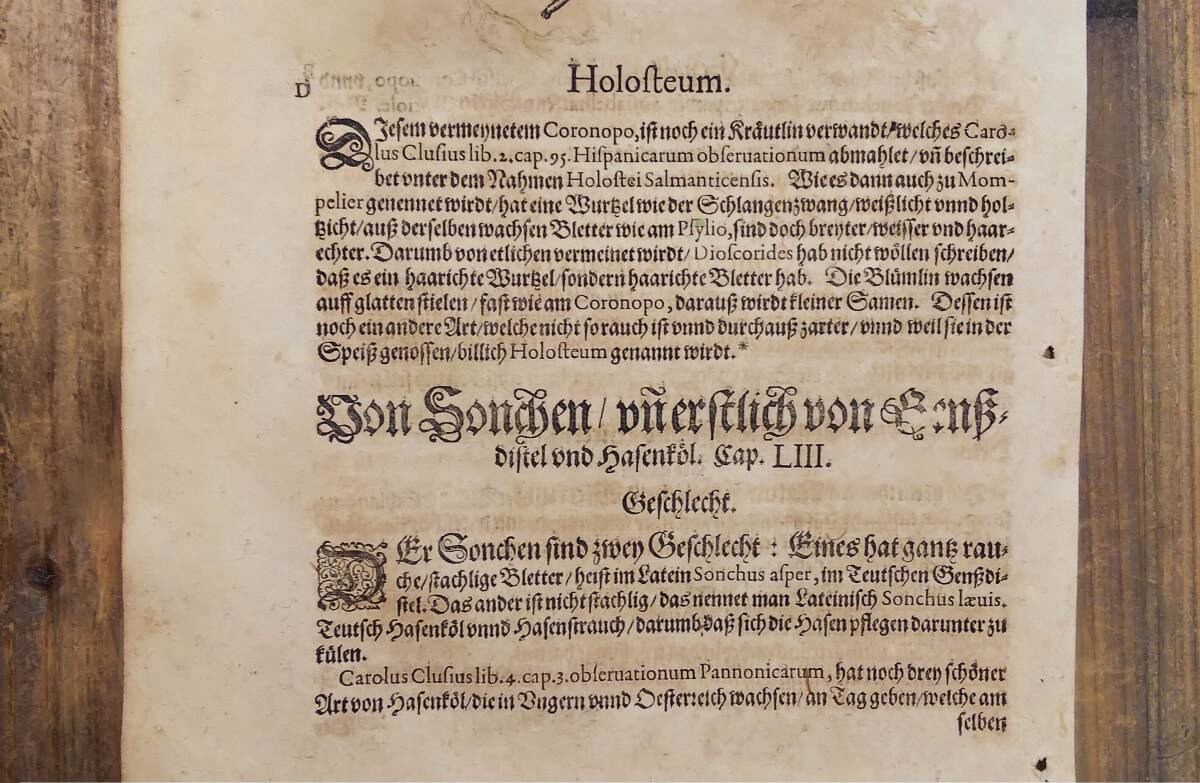 D
Holoſteum.
DJeſem vermeynetem Coronopo, iſt noch ein Kräutlin verwandt/ welches Caro-
lus Cluſius lib. 2. cap. 95. Hiſpanicarum obſeruationum abmahlet/ vñ beſchrei-
bet vnter dem Nahmen Holoſtei Salmanticenſis. Wie es dann auch zu Mom-
pelier genennet wirdt/ hat eine Wurtzel wie der Schlangenzwang/ weißlicht vnnd hol-
tzicht/ auß derſelben wachſen Bletter wie am Pſylio, ſind doch breyter/ weiſſer vnd haar-
echter. Darumb von etlichen vermeinet wirdt/ Dioſcorides hab nicht wöllen ſchreiben/
daß es ein haarichte Wurtzel/ ſondern haarichte Bletter hab. Die Blümlin wachſen
auff glatten ſtielen/ faſt wie am Coronopo, darauß wirdt kleiner Samen. Deſſen iſt
noch ein andere Art/ welche nicht ſo rauch iſt vnnd durchauß zarter/ vnnd weil ſie in der
Speiß genoſſen/ billich Holoſteum genannt wirdt.*
Von Sonchen/ vñ erſtlich von Genß-
diſtel vnd Haſenköl. Cap. LIII.
Geſchlecht.
DEr Sonchen ſind zwey Geſchlecht: Eines hat gantz rau-
che/ ſtachlige Bletter/ heiſt im Latein Sonchus aſper, im Teutſchen Genßdi-
ſtel. Das ander iſt nicht ſtachlig/ das nennet man Lateiniſch Sonchus læuis.
Teutſch Haſenköl vnnd Haſenſtrauch/ darumb daß ſich die Haſen pflegen darunter zu
külen.
Carolus Cluſius lib. 4. cap. 3. obſeruationum Pannonicarum, hat noch drey ſchöner
Art von Haſenköl/ die in Vngern vnnd Oeſterreich wachſen/ an Tag geben/ welche am
ſelben